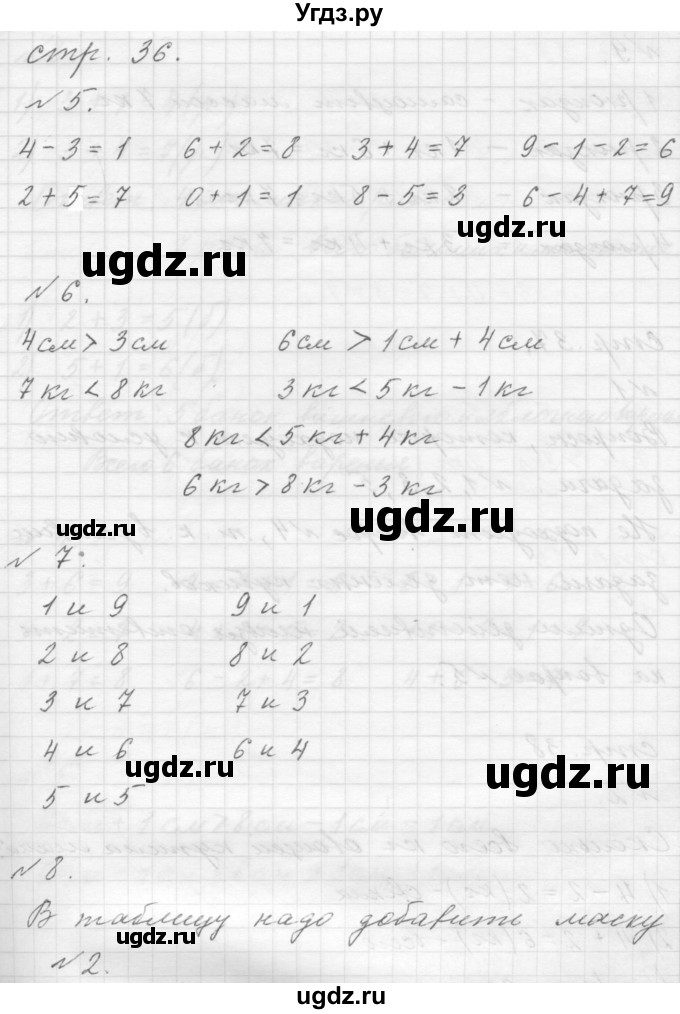 Угдз.ру
стр. 36.
№ 5.
4 - 3 = 1 6 + 2 = 8 3 + 4 = 7 9 - 1 - 2 = 6
2 + 5 = 7 0 + 1 = 1 8 - 5 = 3 6 - 4 + 7 = 9
ugdz.ru
ugdz.ru
№ 6.
4 см > 3 см 6 см > 1 см + 4 см
7 кг < 8 кг 3 кг < 5 кг - 1 кг
8 кг < 5 кг + 4 кг
6 кг > 8 кг - 3 кг
ugdz.ru
ugdz.ru
№ 7.
1 и 9 9 и 1
2 и 8 8 и 2
3 и 7 7 и 3
4 и 6 6 и 4
ugdz.ru
ugdz.ru
5 и 5
№ 8.
В таблицу надо добавить маску
№ 2.
ugdz.ru
ugdz.ru